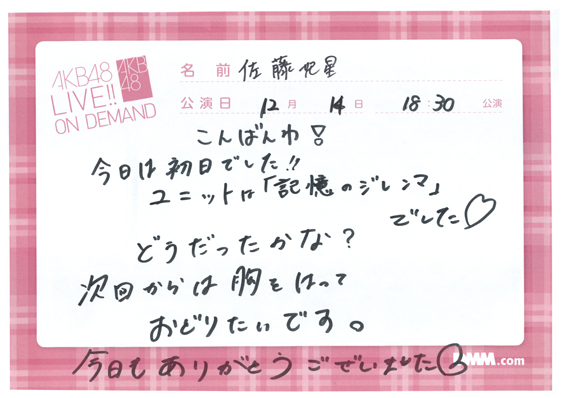 AKB48
LIVE!!
ON DEMAND
AKB
48
名前 佐藤妃星
公演日 12月 14日 18:30 公演
こんばんわ!
今日は初日でした!!
ユニットは「記憶のジレンマ」
でした♡
どうだったかな?
次回からは胸をはって
おどりたいです。
今日もありがとうございました
DMM.com